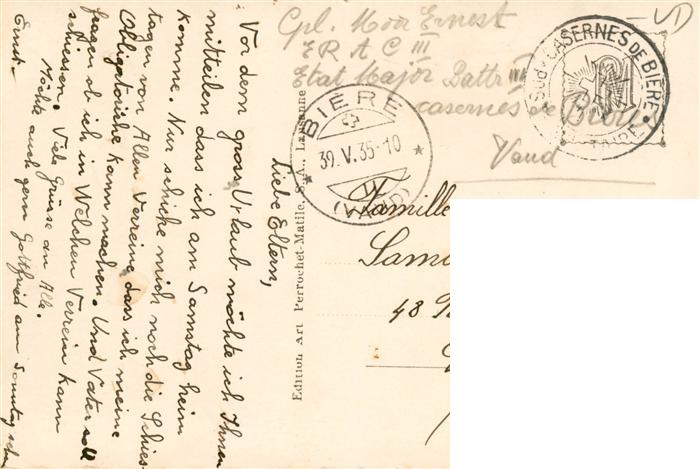 Liebe Eltern,
Vor dem gross Urlaub möchte ich Ihnen
mitteilen dass ich am Samstag heim
komme. Nur schicke mich noch die Schies-
tagen von Allen Vereine, dass ich meine
Obligatorische kann machen. Und Vater soll
fragen ob ich in Welchen Verein kann
schiessen. Viele Grüsse an Alle.
Ernst.-
Möchte auch gern Gottfried am Sonntag sehn
Cpl. Moor Ernest
E R A C III
Etat Major Battr III
casernes de Bière
Vaud
BIÈRE
30.V.35-10
(VAUD)
CASERNES DE BIÈRE
Edition Art Perrochet-Matile, S. A., Lausanne
Famille
48